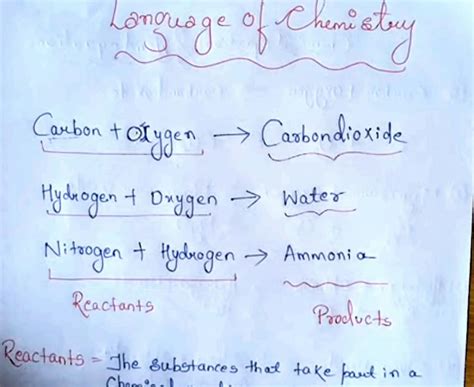 Language of Chemistry
Carbon + Oxygen → Carbondioxide
Hydrogen + Oxygen → Water
Nitrogen + Hydrogen → Ammonia
Reactants Products
Reactants = The substances that take part in a